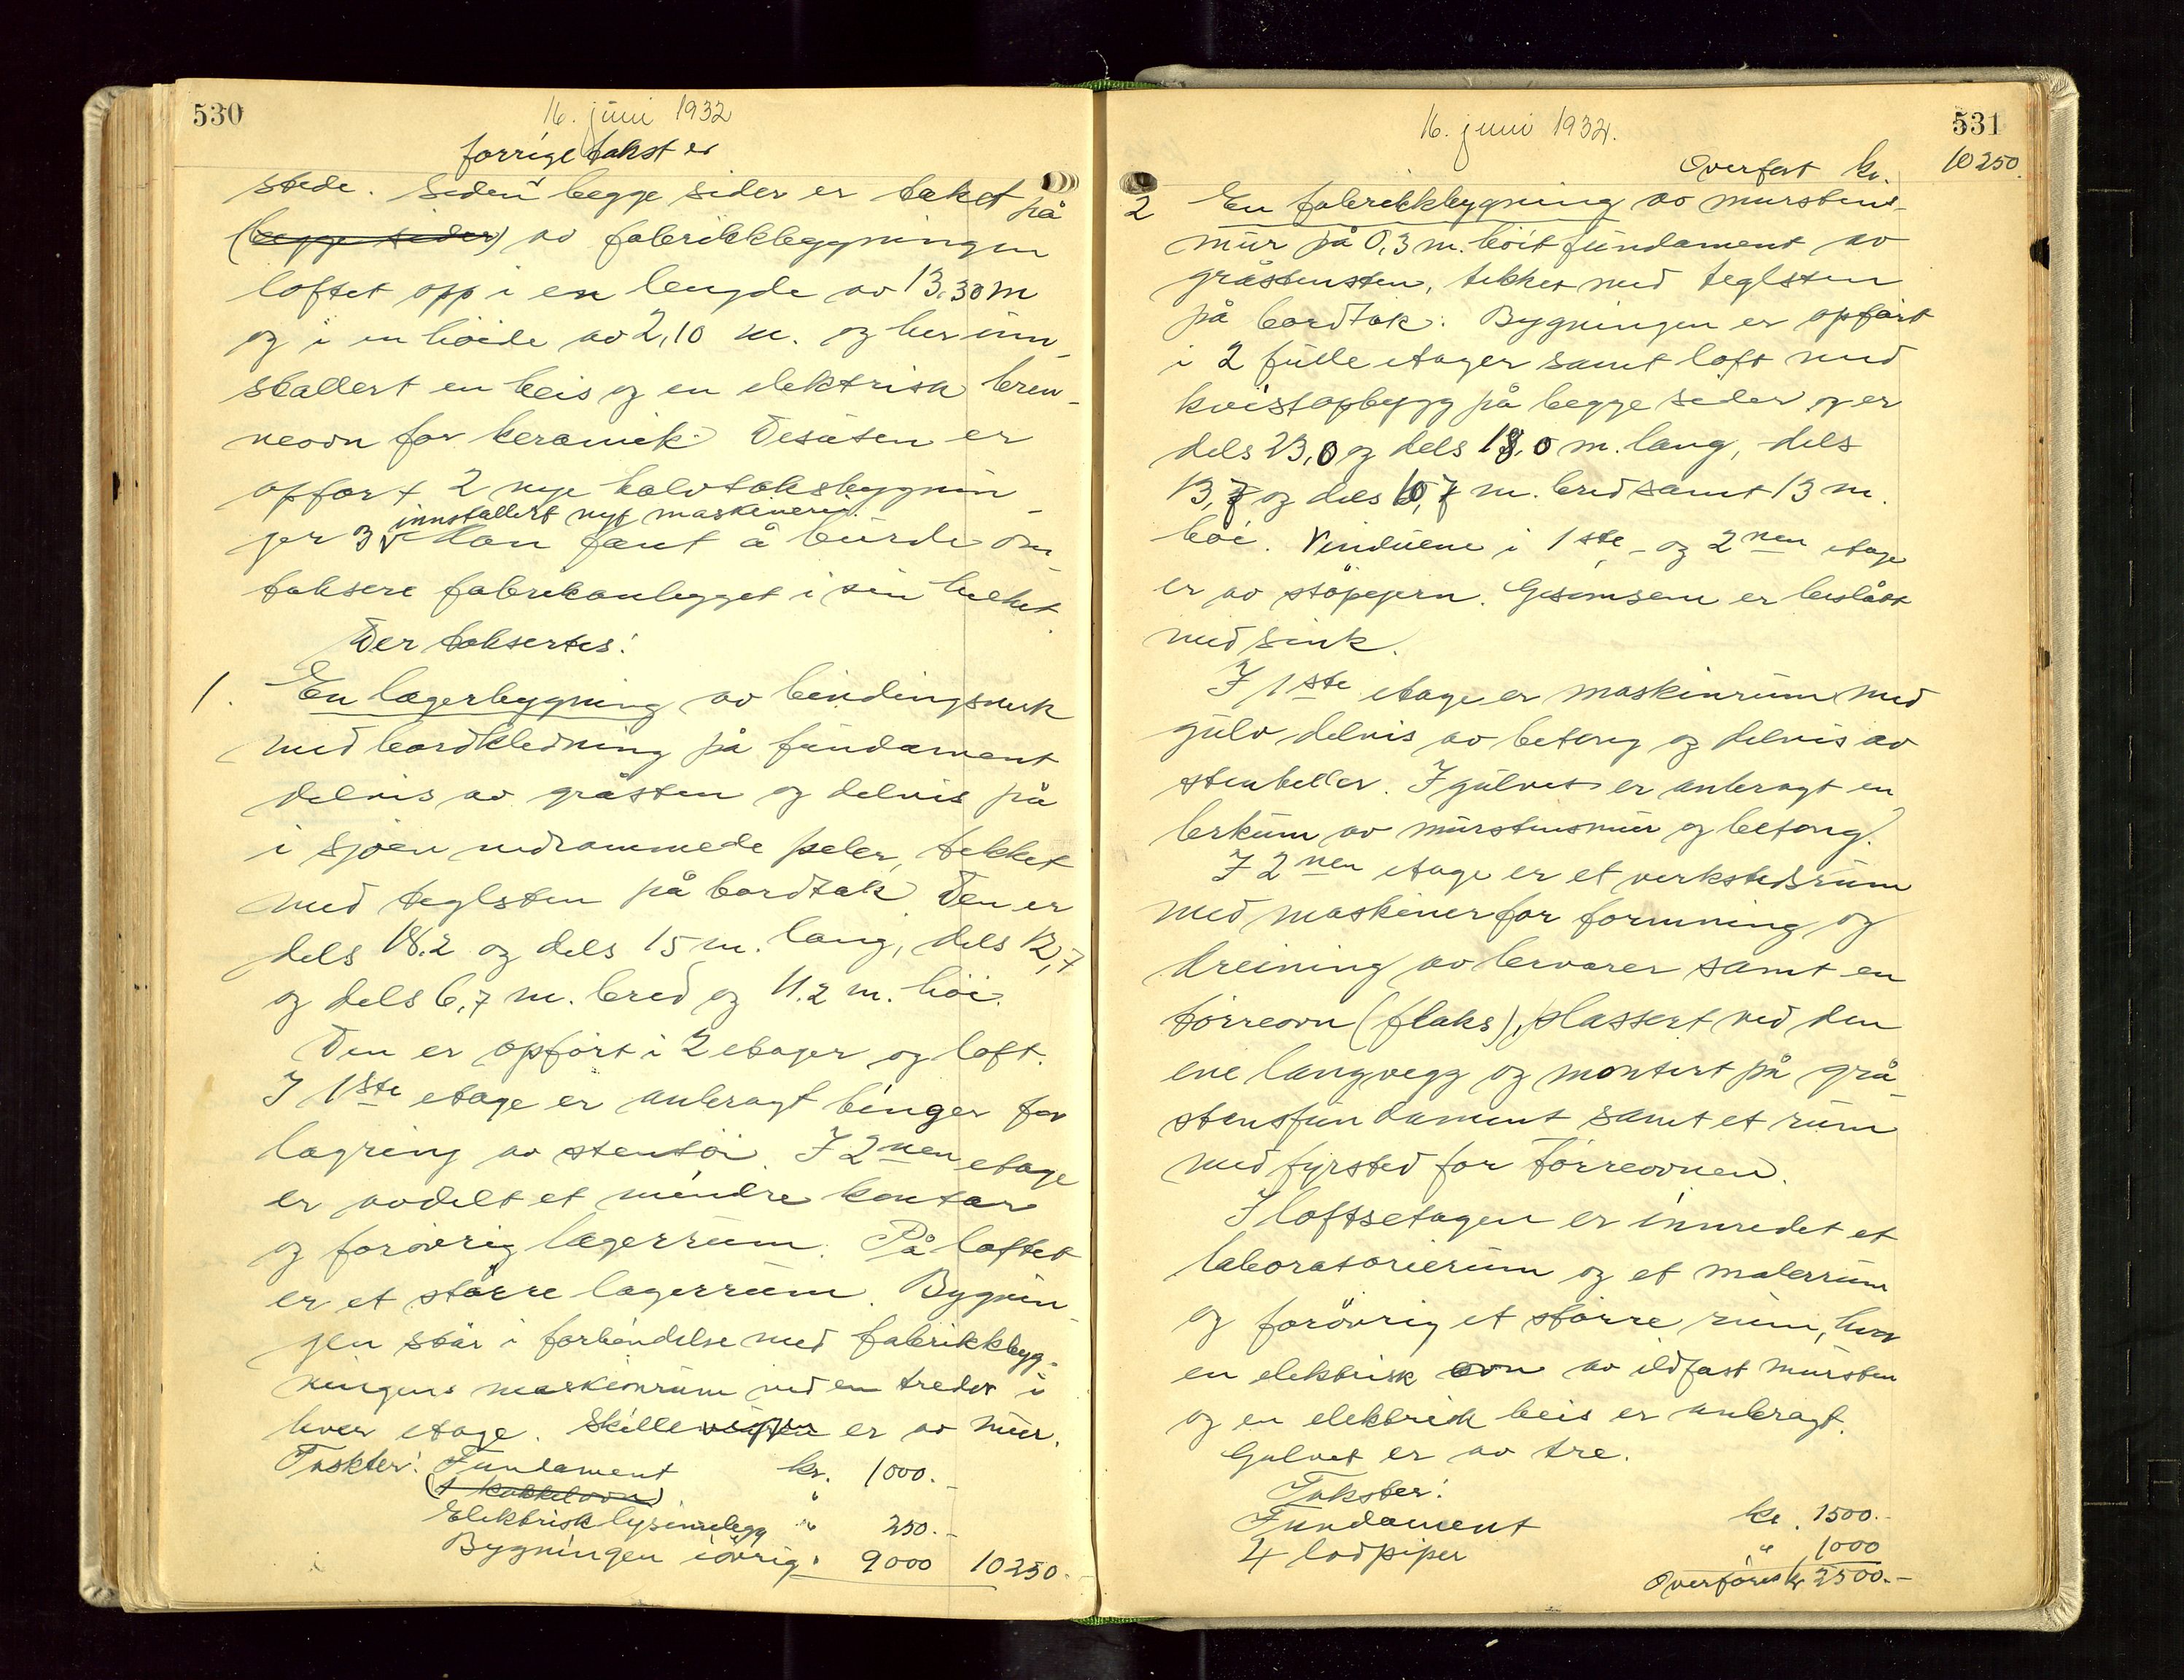 530
16. juni 1932
forrige takst er
stede. Siden begge sider er taket på
(begge sider) av fabrikkbygningen
loftet opp i en lengde av 13,30 m
og i en höide av 2,10 m. og her inn-
stallert en heis og en elektrisk bren-
neovn for keramik. Desuten er
opfört 2 nye halvtaksbygnin-
innstallert nyt maskineri.
ger og Man fant å burde om-
taksere fabrikanlegget i sin helhet.
Der taksertes:
1. En lagerbygning av bindingsverk
med bordkledning på fundament
delvis av gråsten og delvis på
i sjöen nedrammede peler, tekket
med teglsten på bordtak. Den er
dels 18.2 og dels 15 m. lang, dels 12,7
og dels 6,7 m. bred og 11.2 m. höi.
Den er opfört i 2 etager og loft.
I 1ste etage er anbragt binger for
lagring av stentöi. I 2nen etage
er avdelt et mindre kontor
og forövrig lagerrum. På loftet
er et större lagerrum. Bygnin-
gen står i forbindelse med fabrikkbyg-
ningens maskinrum ved en tredör i
hver etage. Skilleveggen er av mur.
Takster: Fundament kr. 1000.-
(1 kakkelovn) "
Elektrisk lysanlegg " 250.-
Bygningen iövrig " 9000 10250.-
16. juni 1932.
531
Overfört kr. 10250.
2 En fabrikkbygning av murstens-
mur på 0,3 m. höit fundament av
gråstensten, tekket med teglsten
på bordtak. Bygningen er opfört
i 2 fulle etager samt loft med
kvistopbygg på begge sider og er
dels 23,0 og dels 18,0 m. lang, dels
13,7 og dels 10,7 m. bred samt 13 m.
höi. Vinduene i 1ste og 2nen etage
er av stöpejern. Gesimsene er beslått
med sink.
I 1ste etage er maskinrum med
gulv delvis av betong og delvis av
stenheller. I gulvet er anbragt en
lerkum av murstensmur og betong.
I 2nen etage er et verkstedsrum
med maskiner for formning og
dreining av lervarer samt en
törreovn (flaks), plassert ved den
ene langvegg og montert på grå-
stensfundament samt et rum
med fyrsted for törreovnen.
I loftsetagen er innredet et
laboratorierum og et malerrum
og forövrig et större rum, hvor
en elektrisk ovn av ildfast mursten
og en elektrisk heis er anbragt.
Gulvet er av tre.
Takster:
Fundament kr. 1500.-
4 lodpiper " 1000
Overföres kr 2500.-